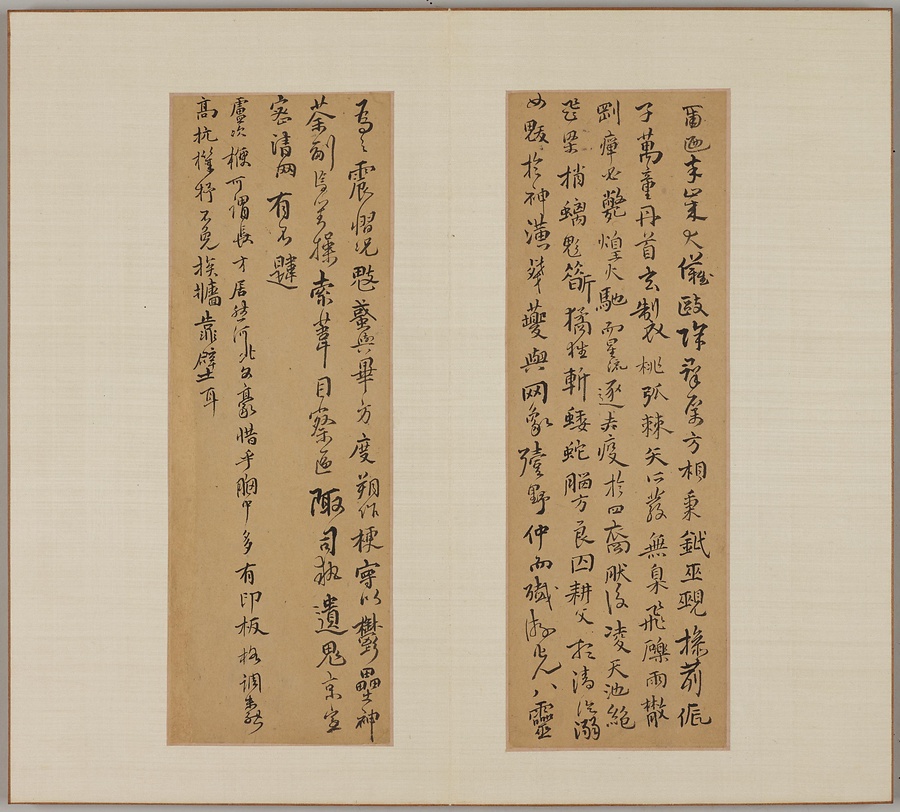 爾迺卒歲大儺毆除群厲方相秉鉞巫覡操茢侲
子萬童丹首玄製桃弧棘矢所發無臬飛礫雨散
剛癉必斃煌火馳而星流逐赤疫於四裔然後凌天池絕
飛梁捎魑鬽斮獝狂斬蜲蛇腦方良囚耕父於清泠溺
女魃於神潢殘夔與网象殪野仲而殲游光八靈
為之震慴况鬾蜮與畢方度朔作梗守以鬱壘神
荼副焉對操索葦目察區陬司執遺鬼京室
密清网有不韙
盧次楩可謂長才居然河北文豪惜乎胸中多有印板格調
高抗枒不免挨牆靠壁耳